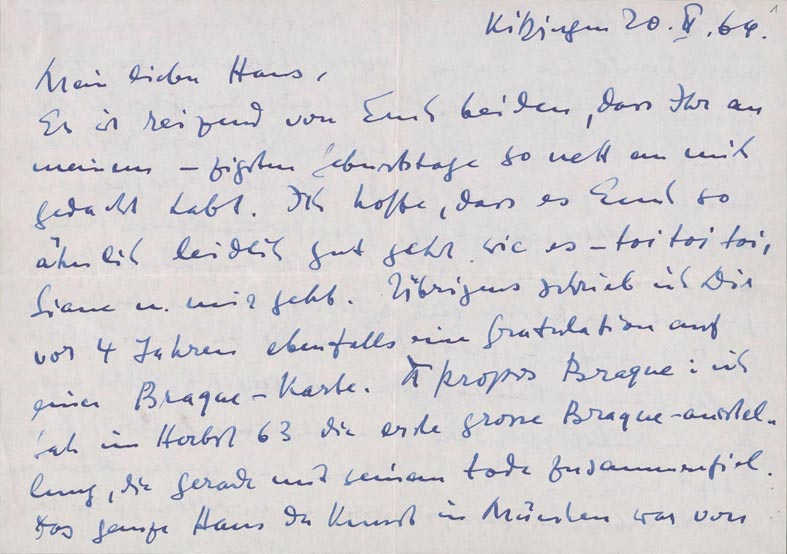 Kitzingen 20. II. 64. 1
Mein lieber Hans,
Es ist reizend von Euch beiden, dass Ihr an
meinem -zigsten Geburtstage so nett an mich
gedacht habt. Ich hoffe, dass es Euch so
ähnlich leidlich gut geht wie es - toi toi toi,
Liane u. mir geht. Übrigens schrieb ich Dir
vor 4 Jahren ebenfalls eine Gratulation auf
einer Braque-Karte. À propos Braque: ich
sah im Herbst 63 die erste grosse Braque-austel-
lung, die gerade mit seinem tode zusammenfiel.
Das ganze Haus der Kunst in München war von